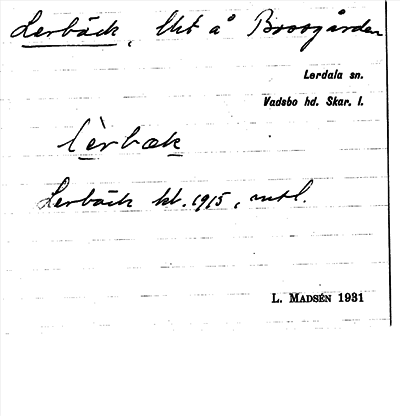 Lerbäck, lht å Brosgården
Lerdala sn.
Vadsbo hd. Skar. l.
lèrbæk
Lerbäck kb. 1915, mtl.
L. MADSÉN 1931